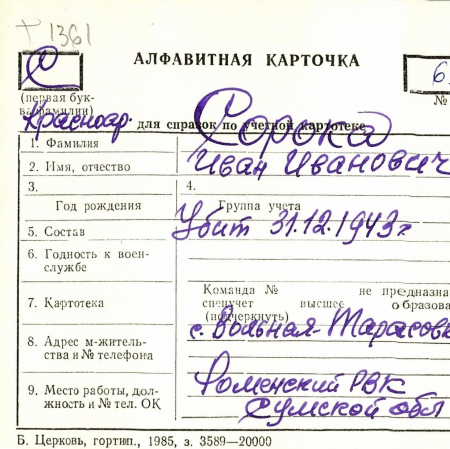 † 1361
С
АЛФАВИТНАЯ КАРТОЧКА
6
(первая бук-
ва фамилии)
№
Красноар.
для справок по учетной картотеке
1. Фамилия
Сорока
2. Имя, отчество
Иван Иванович
3.
Год рождения
4.
Группа учета
5. Состав
Убит 31.12.1943г
6. Годность к воен-
службе
7. Картотека
Команда № не предназна
спецучет высшее образова
(подчеркнуть)
8. Адрес м-житель-
ства и № телефона
с. Вольная-Тарасовк
9. Место работы, дол-
жность и № тел. ОК
Роменский РВК
Сумской обл
Б. Церковь, гортип., 1985, з. 3589—20000